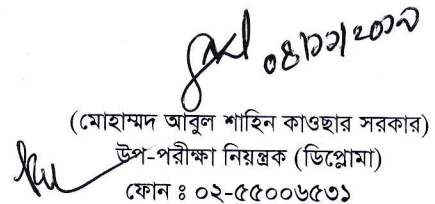 ০৪/১১/২০১৯
(মোহাম্মদ আবুল শাহিন কাওছার সরকার)
উপ-পরীক্ষা নিয়ন্ত্রক (ডিপ্লোমা)
ফোন ঃ ০২-৫৫০০৬৫৩১